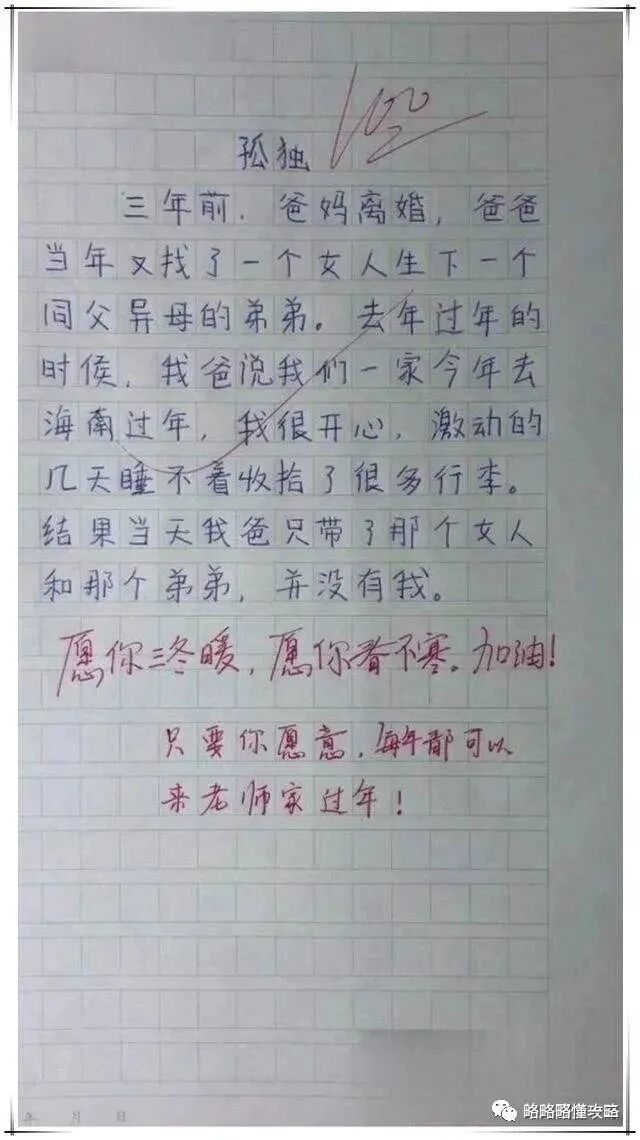 孤独
100
三年前，爸妈离婚，爸爸
当年又找了一个女人生下一个
同父异母的弟弟。去年过年的
时候，我爸说我们一家今年去
海南过年，我很开心，激动的
几天睡不着收拾了很多行李。
结果当天我爸只带了那个女人
和那个弟弟，并没有我。
愿你三冬暖，愿你春不寒。加油！
只要你愿意，每年都可以
来老师家过年！
年 月 日
略略略懂攻略